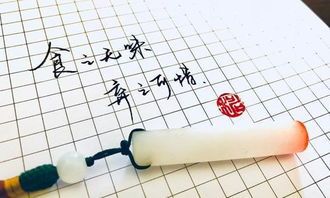 食之无味
弃之可惜.